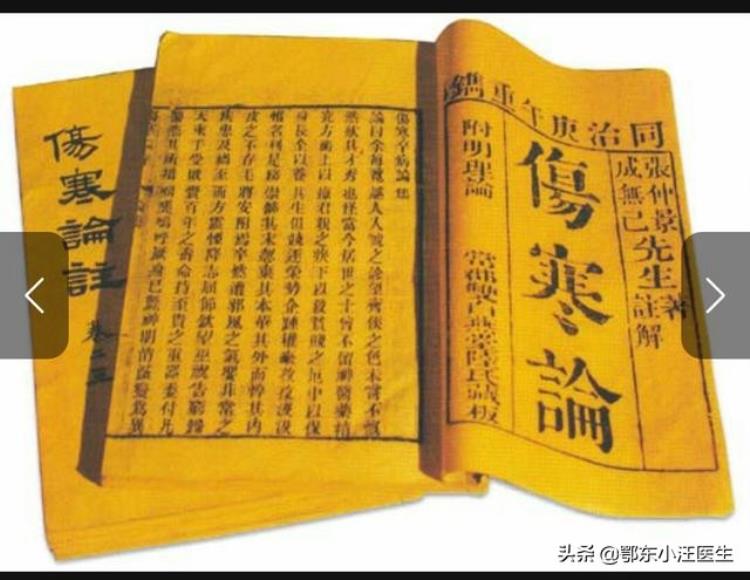 同治庚午重鐫
張仲景
成無己
先生
著
註解
傷寒論
附明理論 常郡雙白燕堂陸氏藏板
傷寒卒病論集
論曰余每覽越人入虢之診望齊侯之色未嘗不慨
然歎其才秀也怪當今居世之士曾不留神醫藥精
究方術上以療君親之疾下以救貧賤之厄中以保
身長全以養其生但競逐榮勢企踵權豪孜孜汲汲
惟名利是務崇飾其末忽棄其本華其外而悴其內
皮之不存毛將安附焉卒然遭邪風之氣嬰非常之
疾患及禍至而方震慄降志屈節欽望巫祝告窮歸
天束手受敗賫百年之壽命持至貴之重器委付凡
醫恣其所措咄嗟嗚呼厥身已斃神明消滅變為異
傷寒論註
卷二三
头条 @鄂东小汪医生